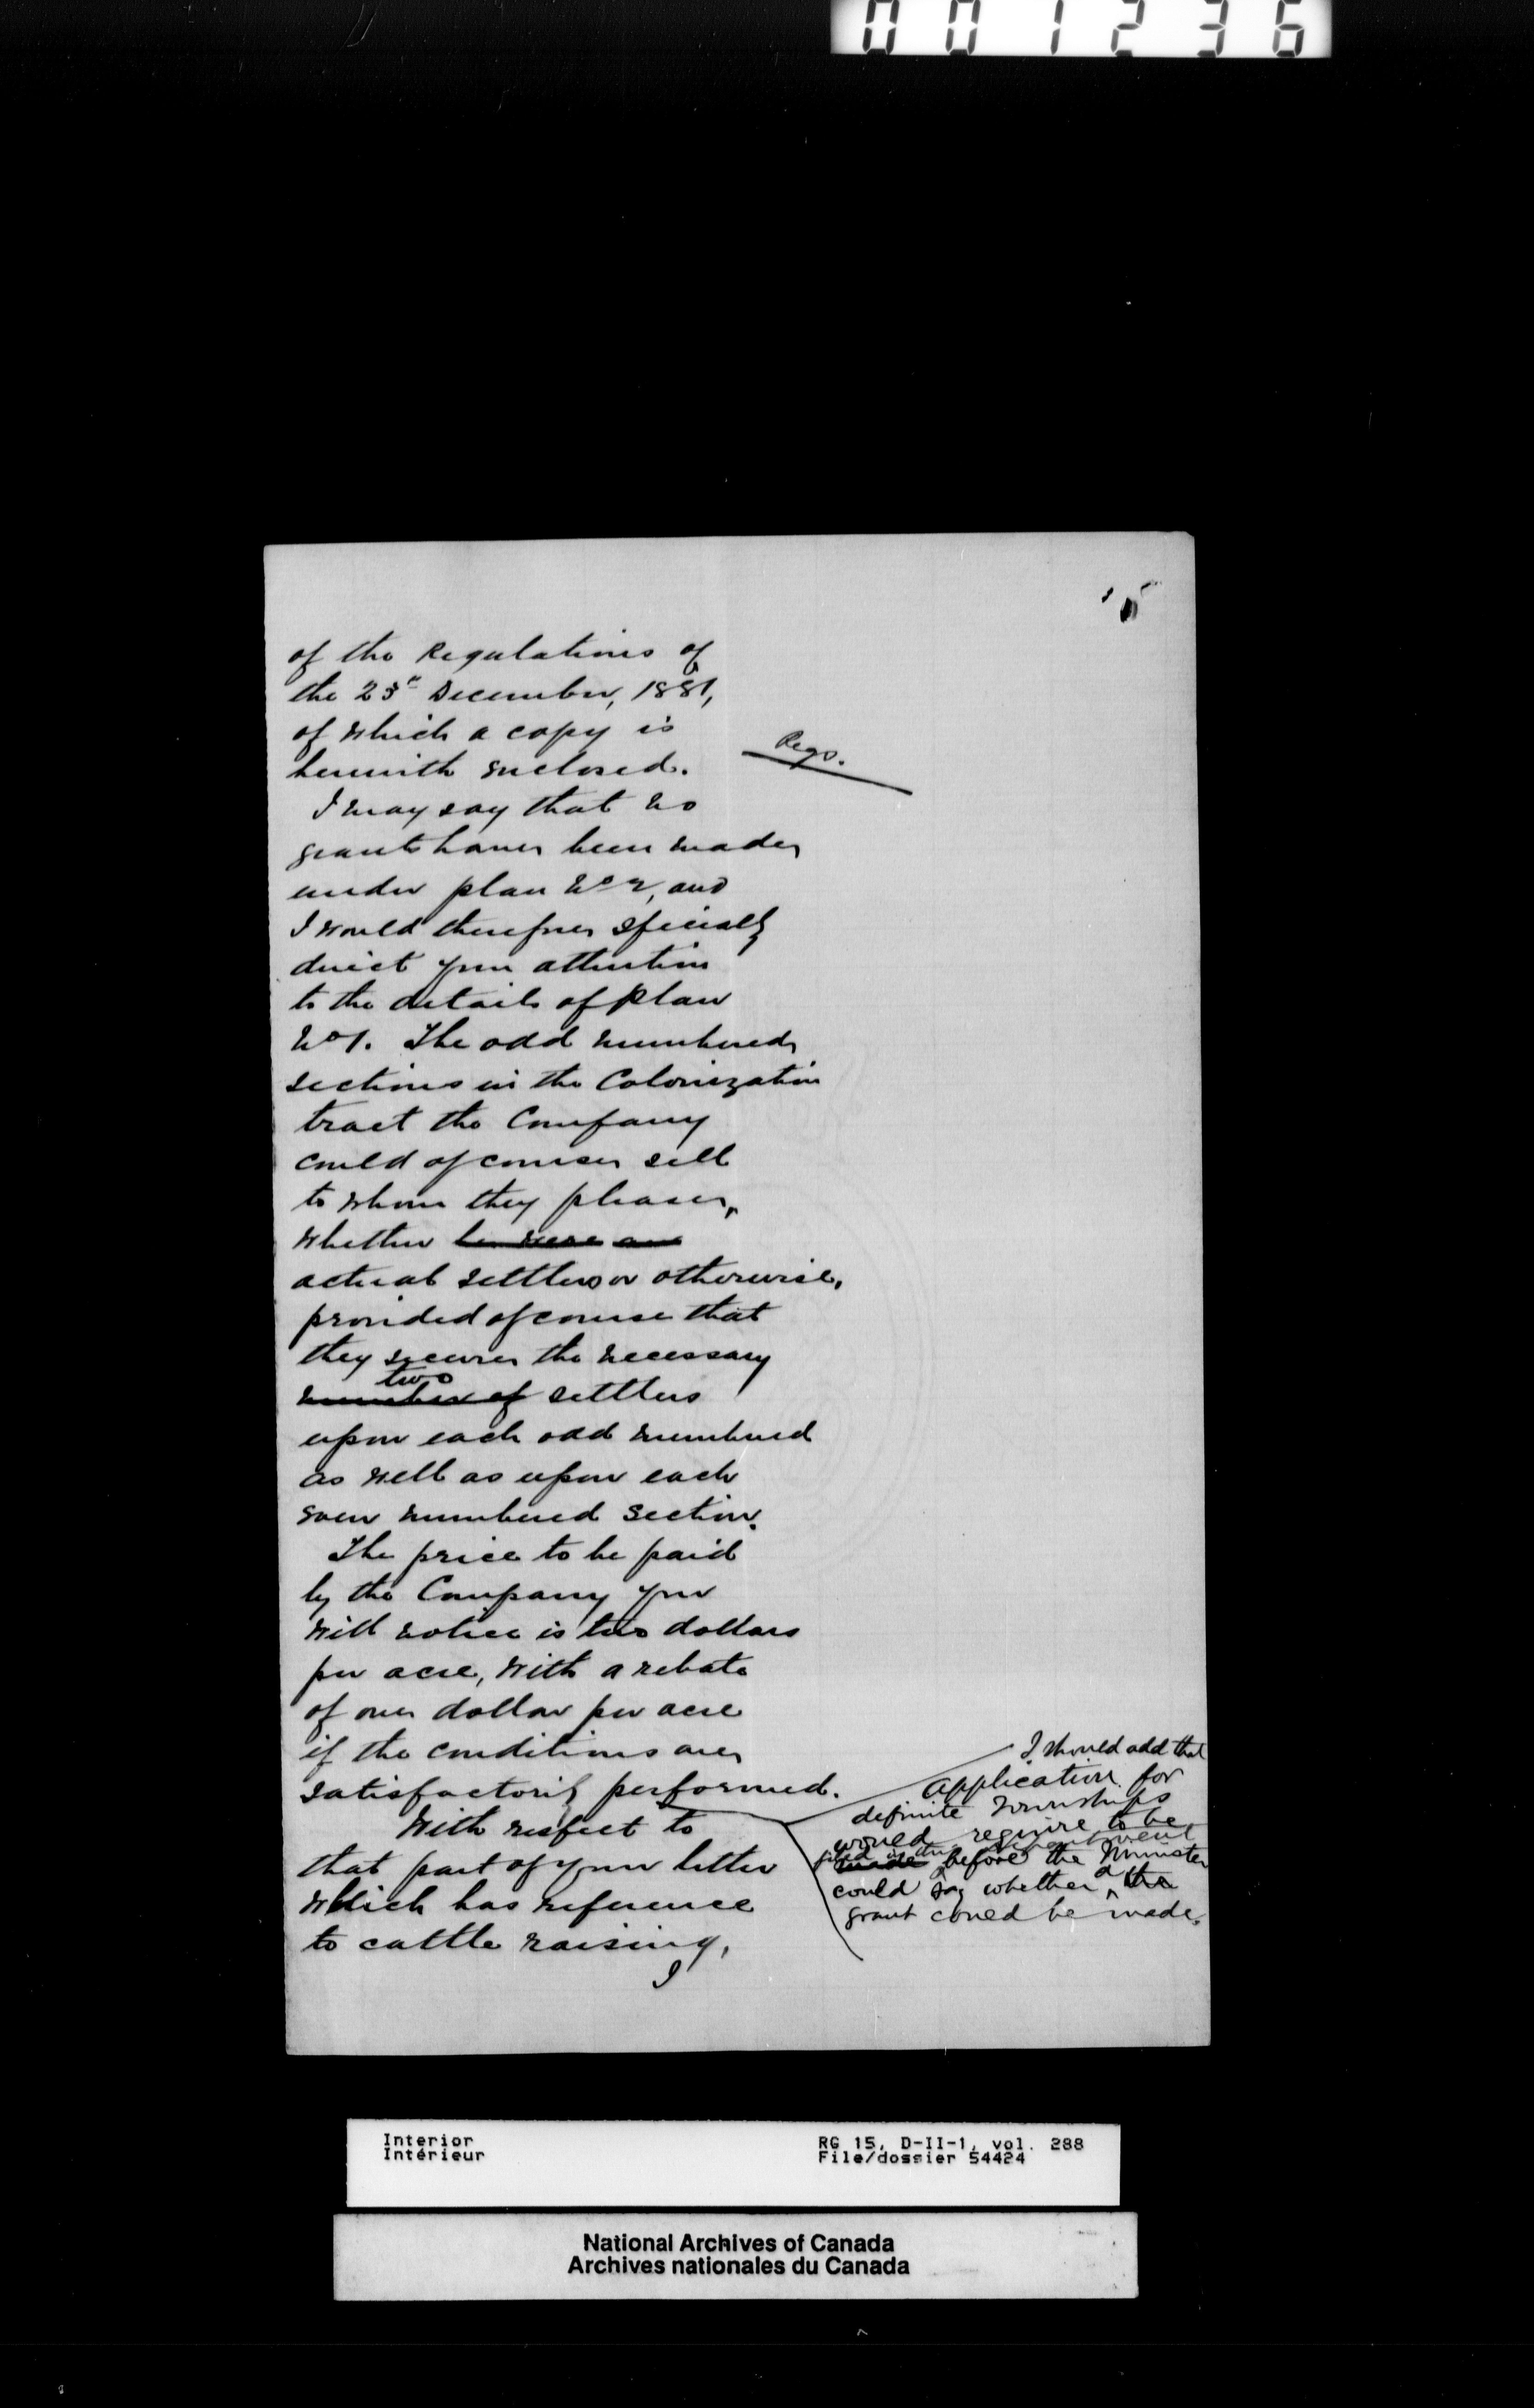 001236
5
of the Regulations of
the 23rd December, 1881,
of which a copy is
herewith enclosed.
Regs.
I may say that no
grants have been made
under plan No 2, and
I would therefore specially
direct your attention
to the details of plan
No 1. The odd numbered
sections in the Colonization
tract the Company
could of course sell
to whom they please,
whether he were an
actual settlers or otherwise,
provided of course that
they secure the necessary
two
number of settlers
upon each odd numbered
as well as upon each
even numbered section.
The price to be paid
by the Company you
will notice is two dollars
per acre, with a rebate
of one dollar per acre
if the conditions are
satisfactorily performed.
I should add that
application for
definite Townships
would require to be
filed in the Department
made before the Minister
could say whether a the
grant could be made.
With respect to
that part of your letter
which has reference
to cattle raising,
I
Interior
Intérieur
RG 15, D-II-1, vol. 288
File/dossier 54424
National Archives of Canada
Archives nationales du Canada